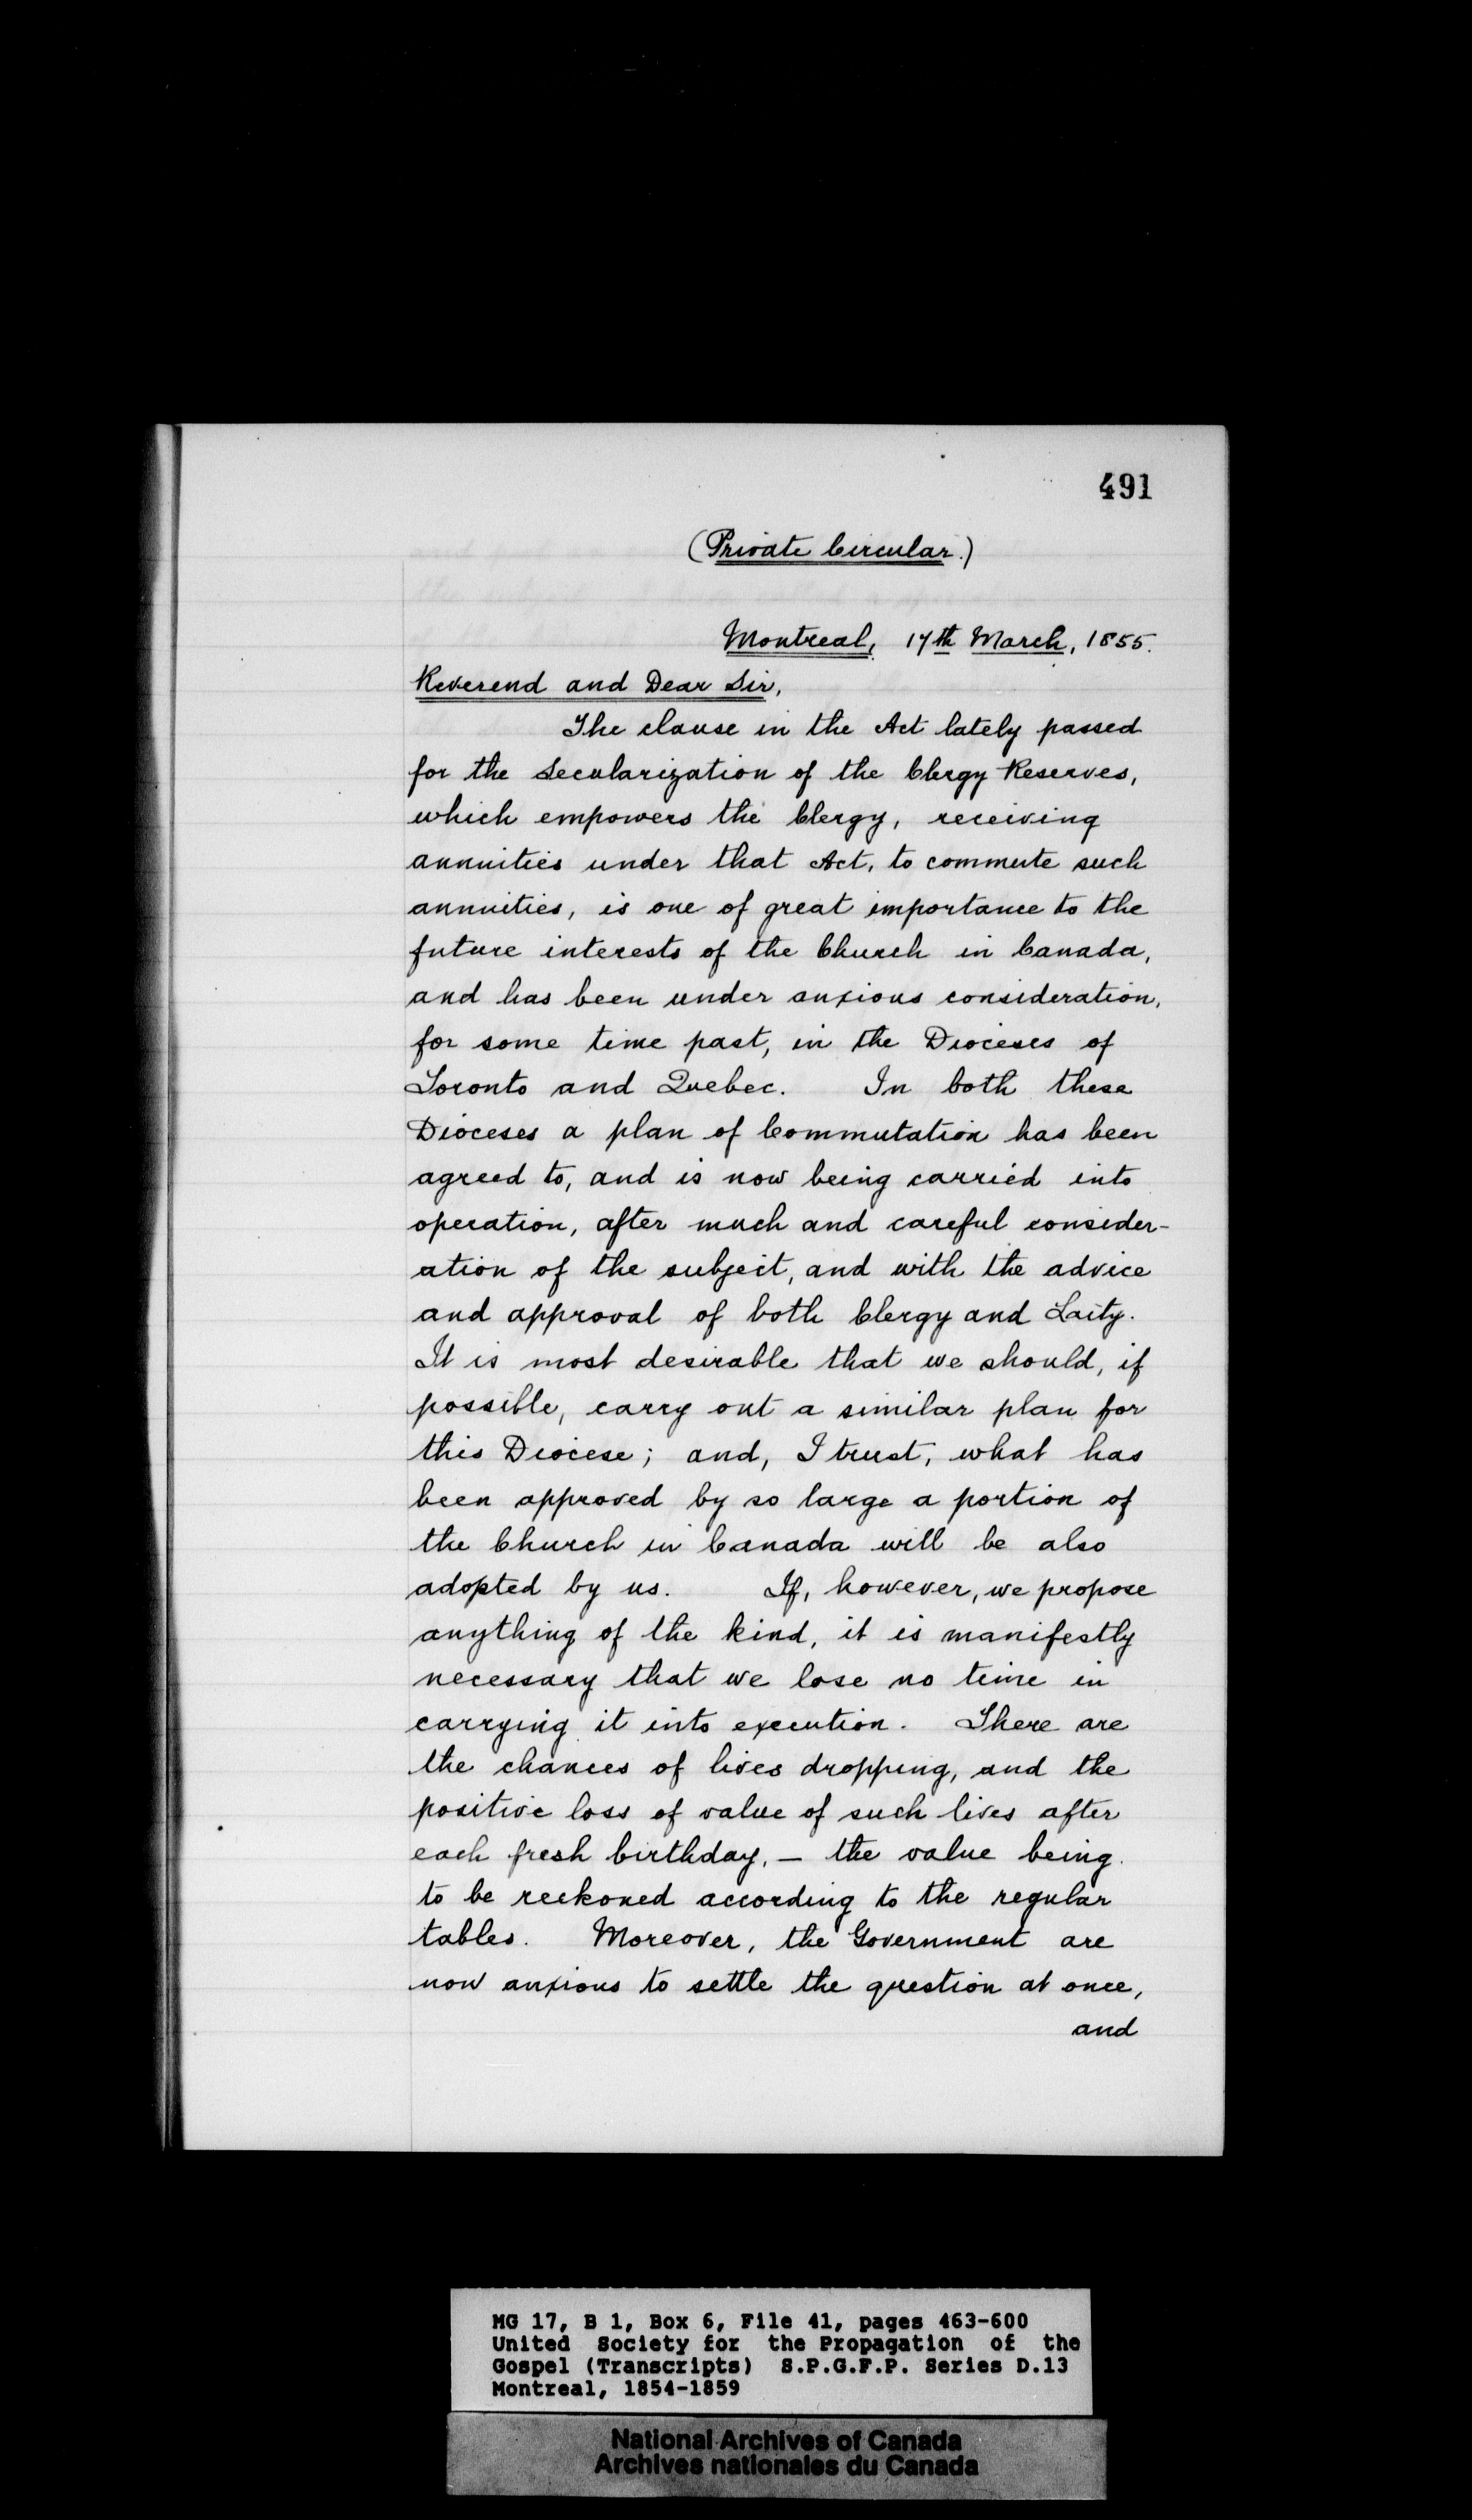 491
(Private Circular.)
Montreal, 17th March, 1855.
Reverend and Dear Sir,
The clause in the Act lately passed
for the Secularization of the Clergy Reserves,
which empowers the Clergy, receiving
annuities under that Act, to commute such
annuities, is one of great importance to the
future interests of the Church in Canada,
and has been under anxious consideration,
for some time past, in the Dioceses of
Toronto and Quebec. In both these
Dioceses a plan of Commutation has been
agreed to, and is now being carried into
operation, after much and careful consider-
ation of the subject, and with the advice
and approval of both Clergy and Laity.
It is most desirable that we should, if
possible, carry out a similar plan for
this Diocese; and, I trust, what has
been approved by so large a portion of
the Church in Canada will be also
adopted by us. If, however, we propose
anything of the kind, it is manifestly
necessary that we lose no time in
carrying it into execution. There are
the chances of lives dropping, and the
positive loss of value of such lives after
each fresh birthday, — the value being
to be reckoned according to the regular
tables. Moreover, the Government are
now anxious to settle the question at once,
and
MG 17, B 1, Box 6, File 41, pages 463-600
United Society for the Propagation of the
Gospel (Transcripts) S.P.G.F.P. Series D.13
Montreal, 1854-1859
National Archives of Canada
Archives nationales du Canada